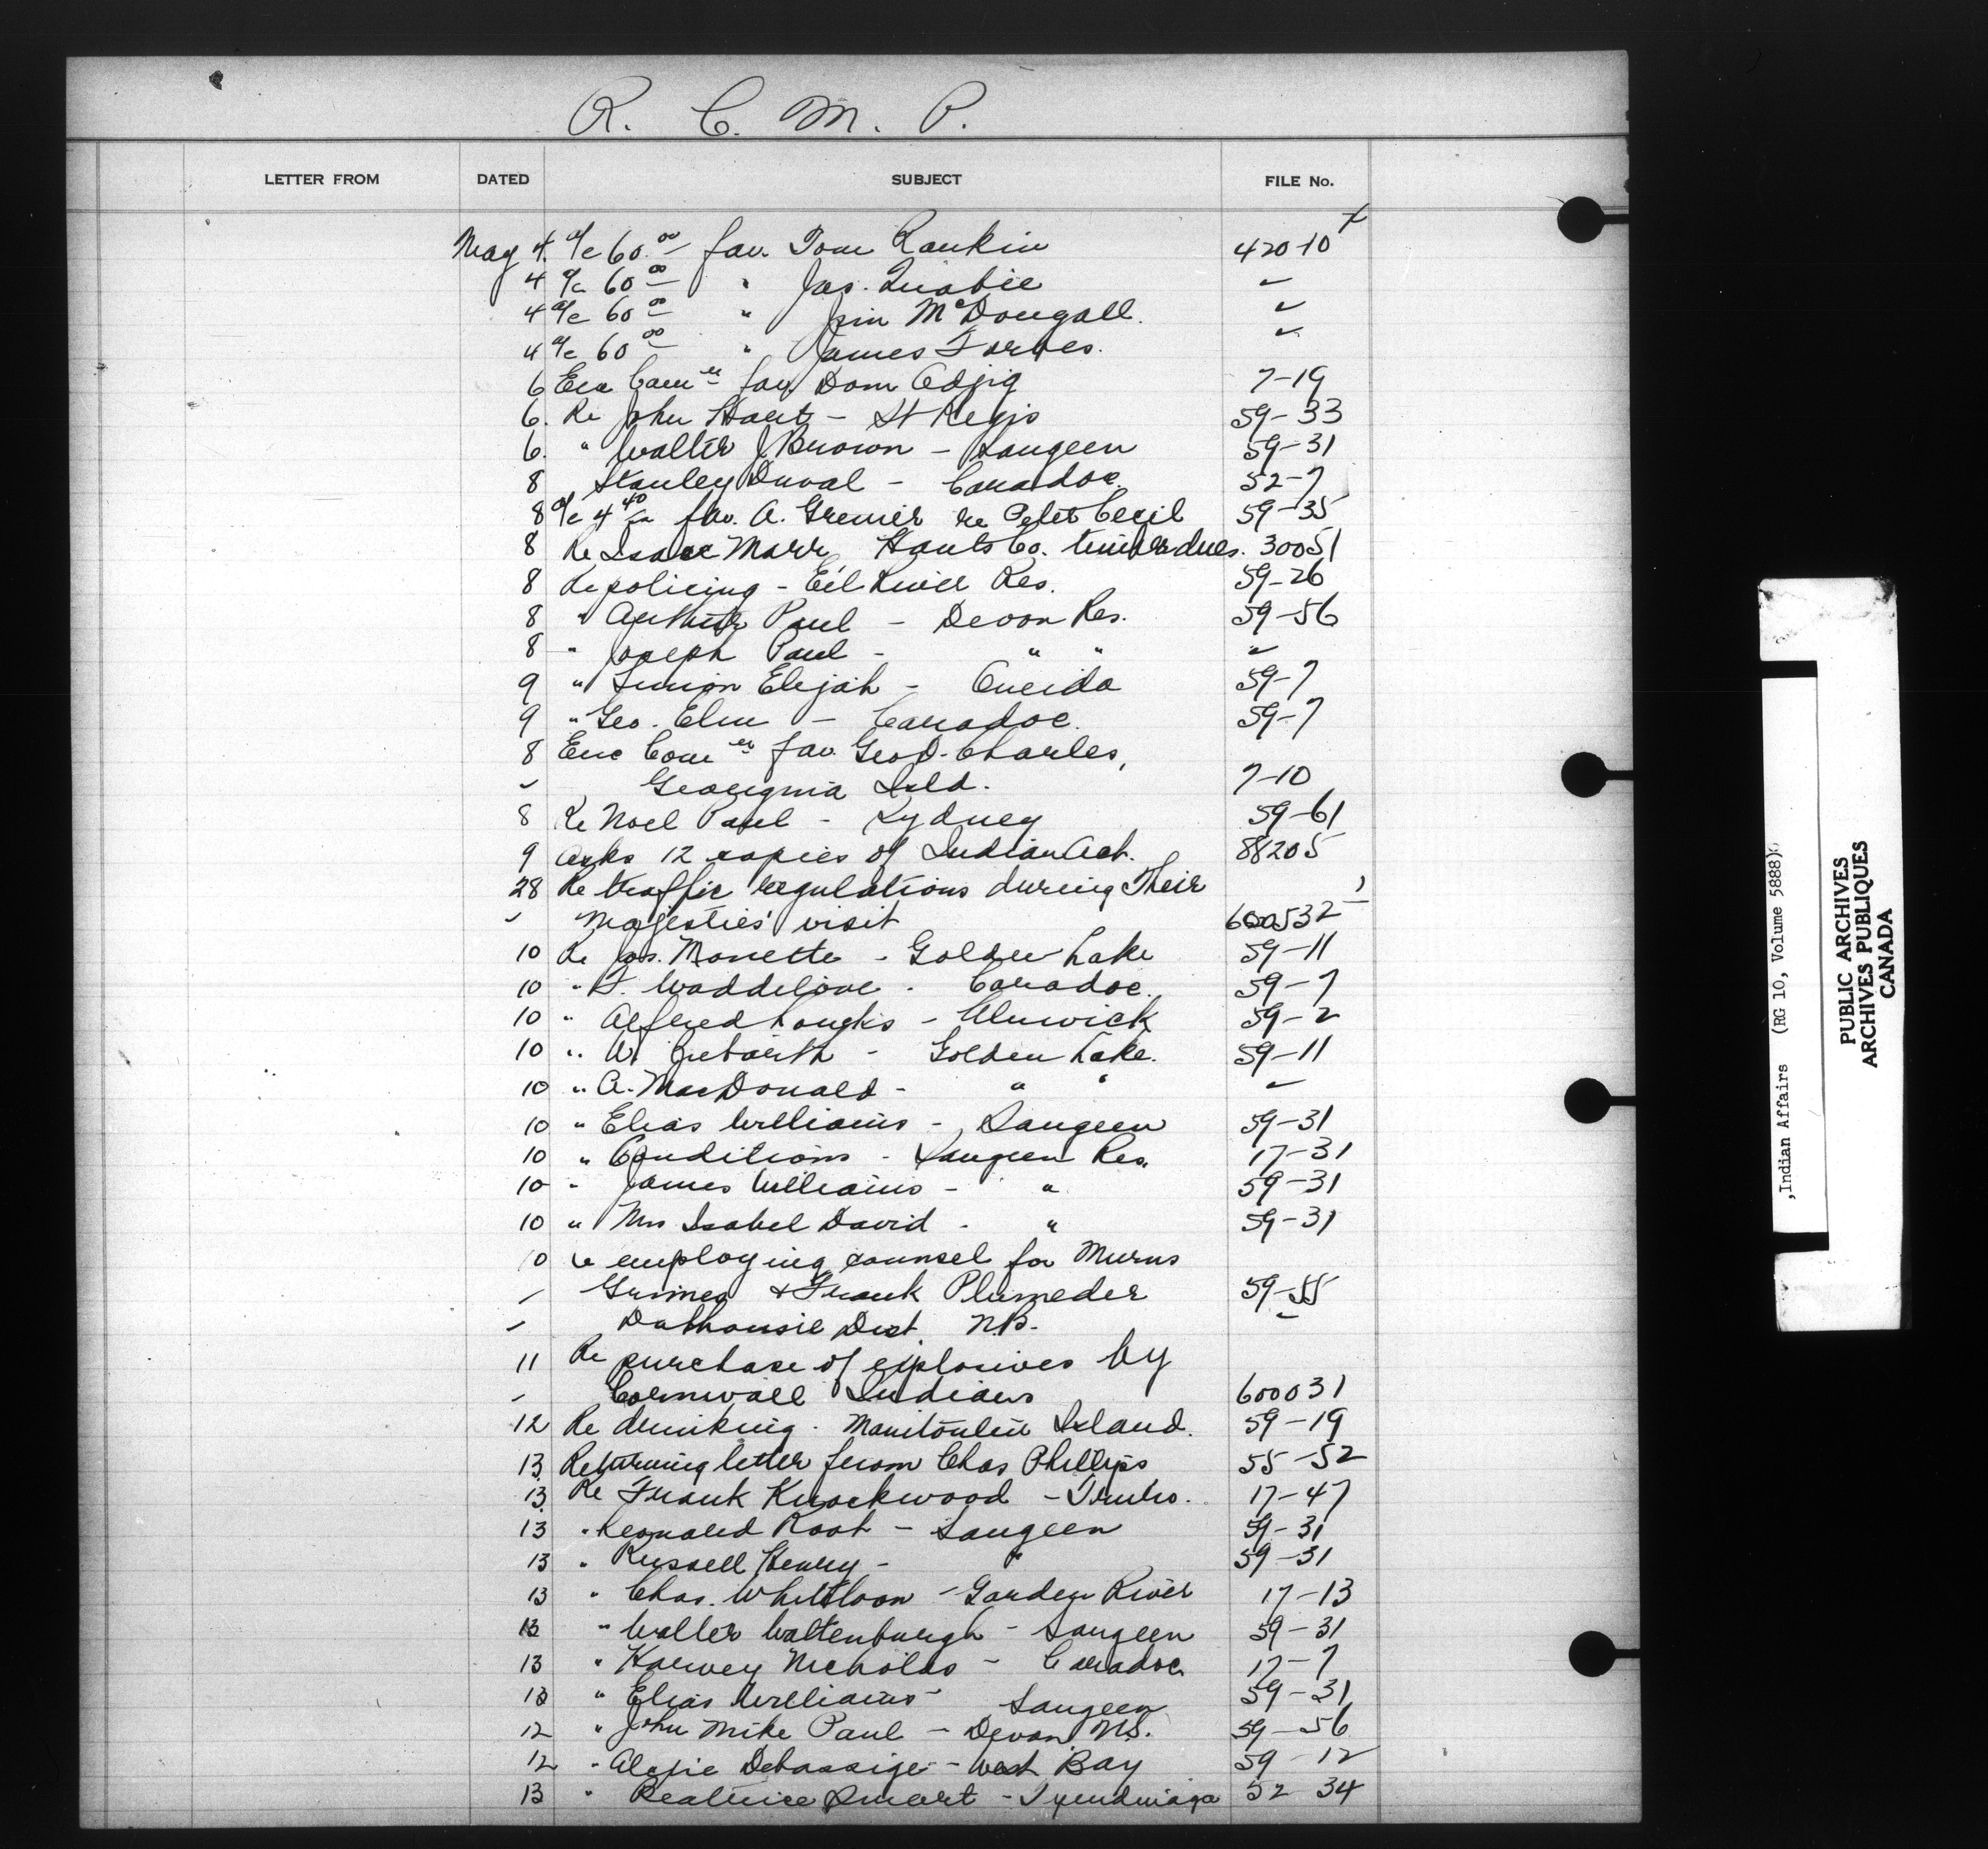 R. C. M. P.
LETTER FROM DATED SUBJECT FILE No.
May 4. a/c 60.00 fav. Tom Rankin 420-10
4 a/c 60.00 " Jas. 
4 a/c 60.00 " Jim McDougall.
4 a/c 60.00 " James Forbes.
6 fav. Dom Odjig 7-19
6. Re John - St Regis 59-33
6. " Walter J Brown - Saugeen 59-31
8 Stanley Duval - Caradoc. 52-7
8 a/c fav. A. Grenier re Peter Cecil 59-35
8 Re Isaac Marr, Hants Co. timber dues. 30051
8 Re policing - Eel River Res. 59-26
8 " Arthur Paul - Devon Res. 59-56
8 " Joseph Paul - " "
9 " Simion Elijah - Oneida 59-7
9 " Geo. Elm - Caradoc. 59-7
8 fav. Geo D. Charles,
Georgina Isld. 7-10
8 Re Noel Paul - Sydney 59-61
9 Asks 12 copies of Indian Act. 88205
28 Re traffic regulations during Their
Majesties' visit 600532
10 Re Jos. Monette - Golden Lake 59-11
10 " Waddilove - Caradoc. 59-7
10 " Alfred Loucks - Alnwick 59-2
10 " - Golden Lake. 59-11
10 " A. MacDonald - " "
10 " Elias Williams - Saugeen 59-31
10 " Conditions - Saugeen Res. 17-31
10 " James Williams - " 59-31
10 " Mrs Isabel David - " 59-31
10 re employing counsel for
& Frank 59-55
Dalhousie Dist. N.B.
11 Re purchase of explosives by
Cornwall Indians 600031
12 Re drinking - Manitoulin Island. 59-19
13 Returning letter from Chas Phillips 55-52
13 Re Frank Knockwood - Truro. 17-47
13 " Leonard Root - Saugeen 59-31
13 " Russell Henry - " 59-31
13 " Chas. - Garden River 17-13
13 " Walter - Saugeen 59-31
13 " Harvey Nicholas - Caradoc 17-7
13 " Elias Williams - Saugeen 59-31
12 " John Mike Paul - Devon 59-56
12 " Debassige - West Bay 59-12
13 " Beatrice Smart - Tyendinaga 52-34
,Indian Affairs (RG 10, Volume 5888)
PUBLIC ARCHIVES
ARCHIVES PUBLIQUES
CANADA